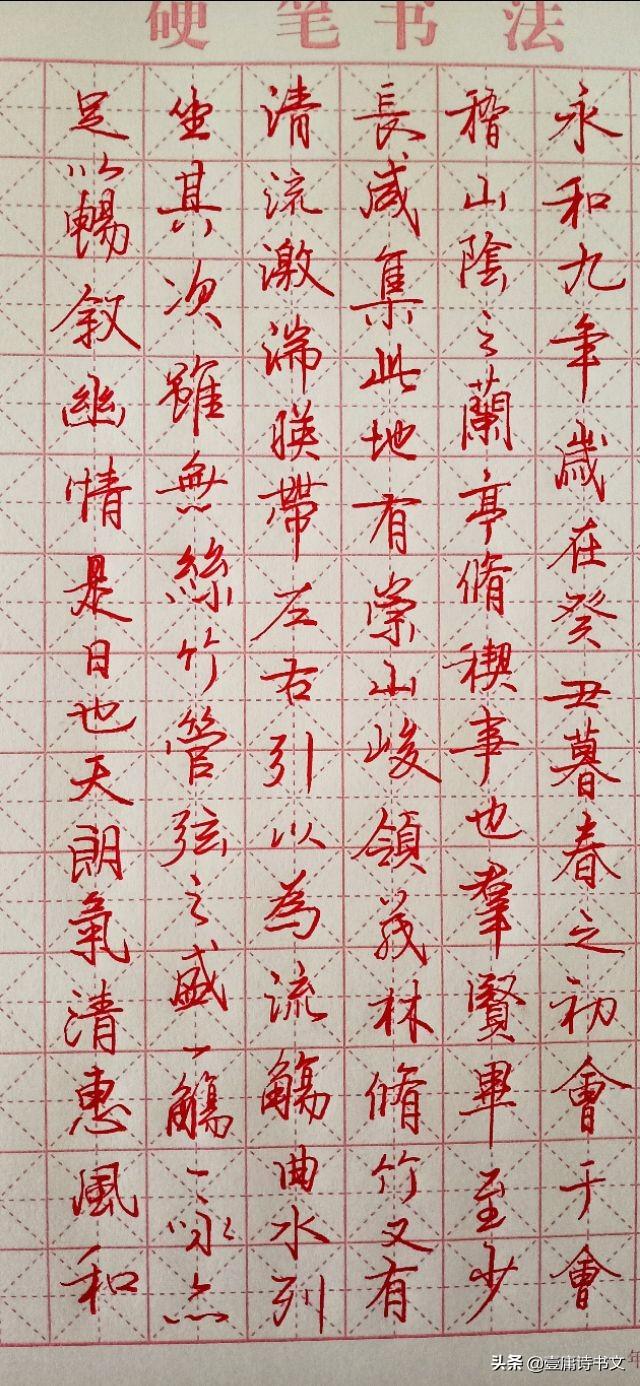 硬笔书法
永和九年歲在癸丑暮春之初會于會
稽山陰之蘭亭脩稧事也羣賢畢至少
長咸集此地有崇山峻領茂林脩竹又有
清流激湍暎帶左右引以為流觴曲水列
坐其次雖無絲竹管弦之盛一觴一詠亦
足以暢叙幽情是日也天朗氣清惠風和
年
头条 @壹庸诗书文